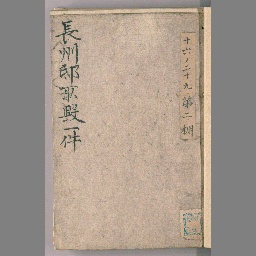 長州邸取毀一件
十六ノ二十九
第二棚